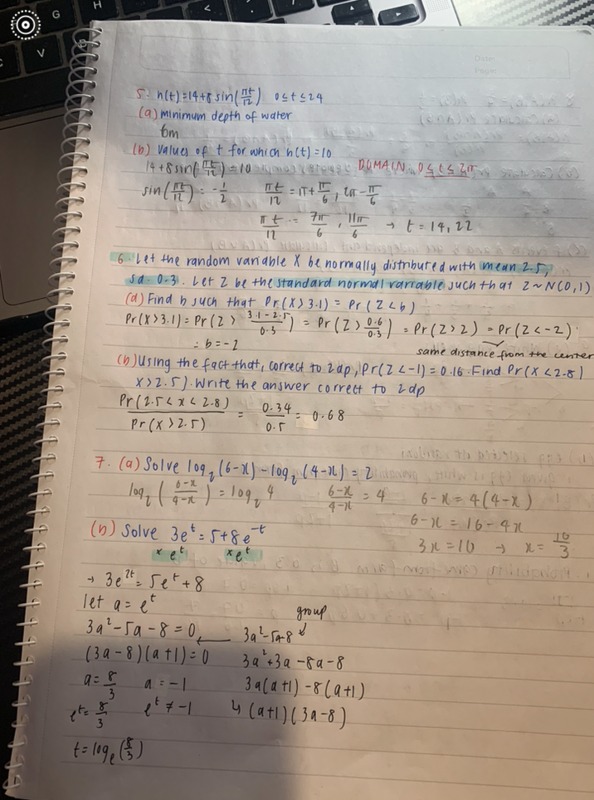 5. h(t)=14+8sin(πt/12) 0≤t≤24
(a) minimum depth of water
6m
(b) values of t for which h(t)=10
14+8sin(πt/12)=10 DOMAIN 0≤t≤2π
sin(πt/12) = -1/2 πt/12 = π+π/6, 2π-π/6
πt/12 = 7π/6, 11π/6 → t=14,22
6. Let the random variable X be normally distributed with mean 2.5,
sd=0.3. Let Z be the standard normal variable such that Z~N(0,1)
(a) Find b such that Pr(X>3.1) = Pr(Z<b)
Pr(X>3.1)=Pr(Z> 3.1-2.5/0.3) = Pr(Z> 0.6/0.3) = Pr(Z>2) = Pr(Z<-2)
∴ b=-2 same distance from the center
(b) Using the fact that, correct to 2dp, Pr(Z<-1)=0.16. Find Pr(X<2.8|
X>2.5). Write the answer correct to 2dp
Pr(2.5<x<2.8)/Pr(X>2.5) = 0.34/0.5 = 0.68
7. (a) Solve log₂(6-x)-log₂(4-x)=2
log₂(6-x/4-x)=log₂4 6-x/4-x = 4 6-x=4(4-x)
6-x=16-4x
3x=10 → x=10/3
(b) Solve 3eᵗ=5+8e⁻ᵗ
×eᵗ ×eᵗ
→ 3e²ᵗ=5eᵗ+8
let a=eᵗ group
3a²-5a-8=0 ← 3a²-5a-8
(3a-8)(a+1)=0 3a²+3a-8a-8
a=8/3 a=-1 3a(a+1)-8(a+1)
eᵗ=8/3 eᵗ≠-1 ↳ (a+1)(3a-8)
t=logₑ(8/3)